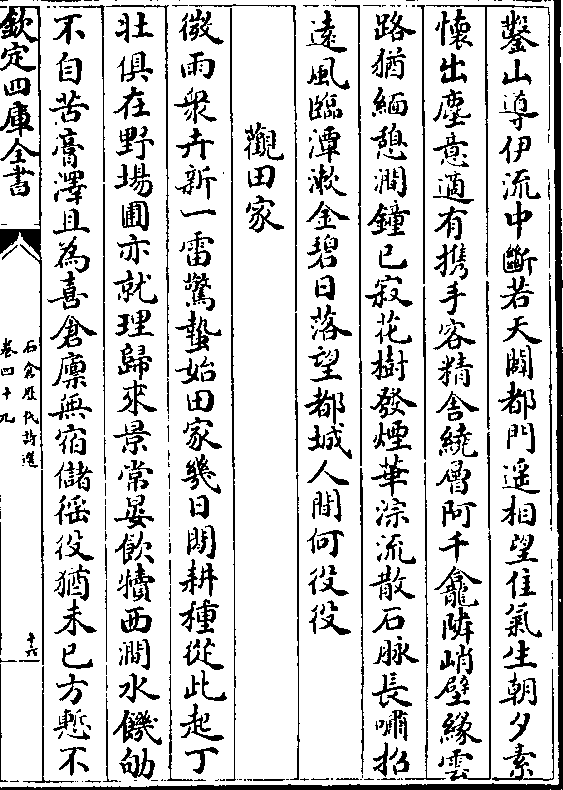 鑿山導伊流中斷若天闢都門遥相望佳氣生朝夕素
懷出塵意適有携手客精舎繞層阿千龕隣峭壁緣雲
路猶緬憩澗鐘已寂花樹發煙華淙流散石脉長嘯招
遠風臨潭漱金碧日落望都城人間何役役
觀田家
微雨衆卉新一雷驚蟄始田家幾日閒耕種從此起丁
壯俱在野場圃亦就理歸來景常晏飲犢西澗水饑劬
不自苦膏澤且為喜倉廩無宿儲徭役猶未已方慙不
欽定四庫全書
石倉歴代詩選
卷四十九
十六